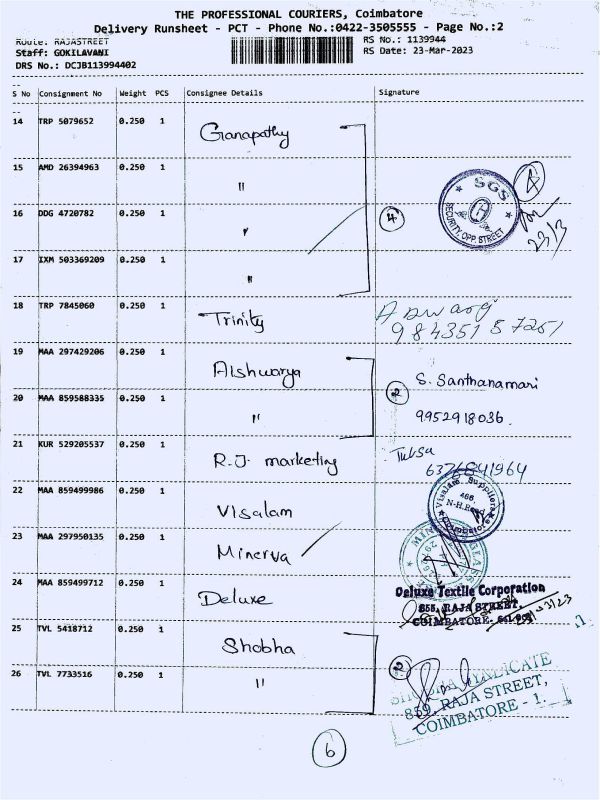 THE PROFESSIONAL COURIERS, Coimbatore
Delivery Runsheet - PCT - Phone No.:0422-3505555 - Page No.:2
Route: RAJASTREET
RS No.: 1139944
Staff: GOKILAVANI
RS Date: 23-Mar-2023
DRS No.: DCJB113994402
S No Consignment No Weight PCS Consignee Details Signature
14 TRP 5079652 0.250 1 Ganapathy
15 AMD 26394963 0.250 1 "
SGS
SECURITY, OPP. STREET
4
23/3
16 DDG 4720782 0.250 1 "
4
17 IXM 503369209 0.250 1 "
18 TRP 7845060 0.250 1 Trinity
19 MAA 297429206 0.250 1 Aishwarya
2 S. Santhanamari
20 MAA 859588335 0.250 1 "
9952918036.
21 KUR 529205537 0.250 1 R.J. marketing
6376841964
22 MAA 859499986 0.250 1 Visalam
Visalam Suppliers
N-H.Road
Coimbatore
23 MAA 297950135 0.250 1 Minerva
24 MAA 859499712 0.250 1 Deluxe
Deluxe Textile Corporation
855, RAJA STREET,
COIMBATORE- 641 001
25 TVL 5418712 0.250 1 Shobha
2
26 TVL 7733516 0.250 1 "
SHOBHA SYNDICATE
859, RAJA STREET,
COIMBATORE - 1.
6